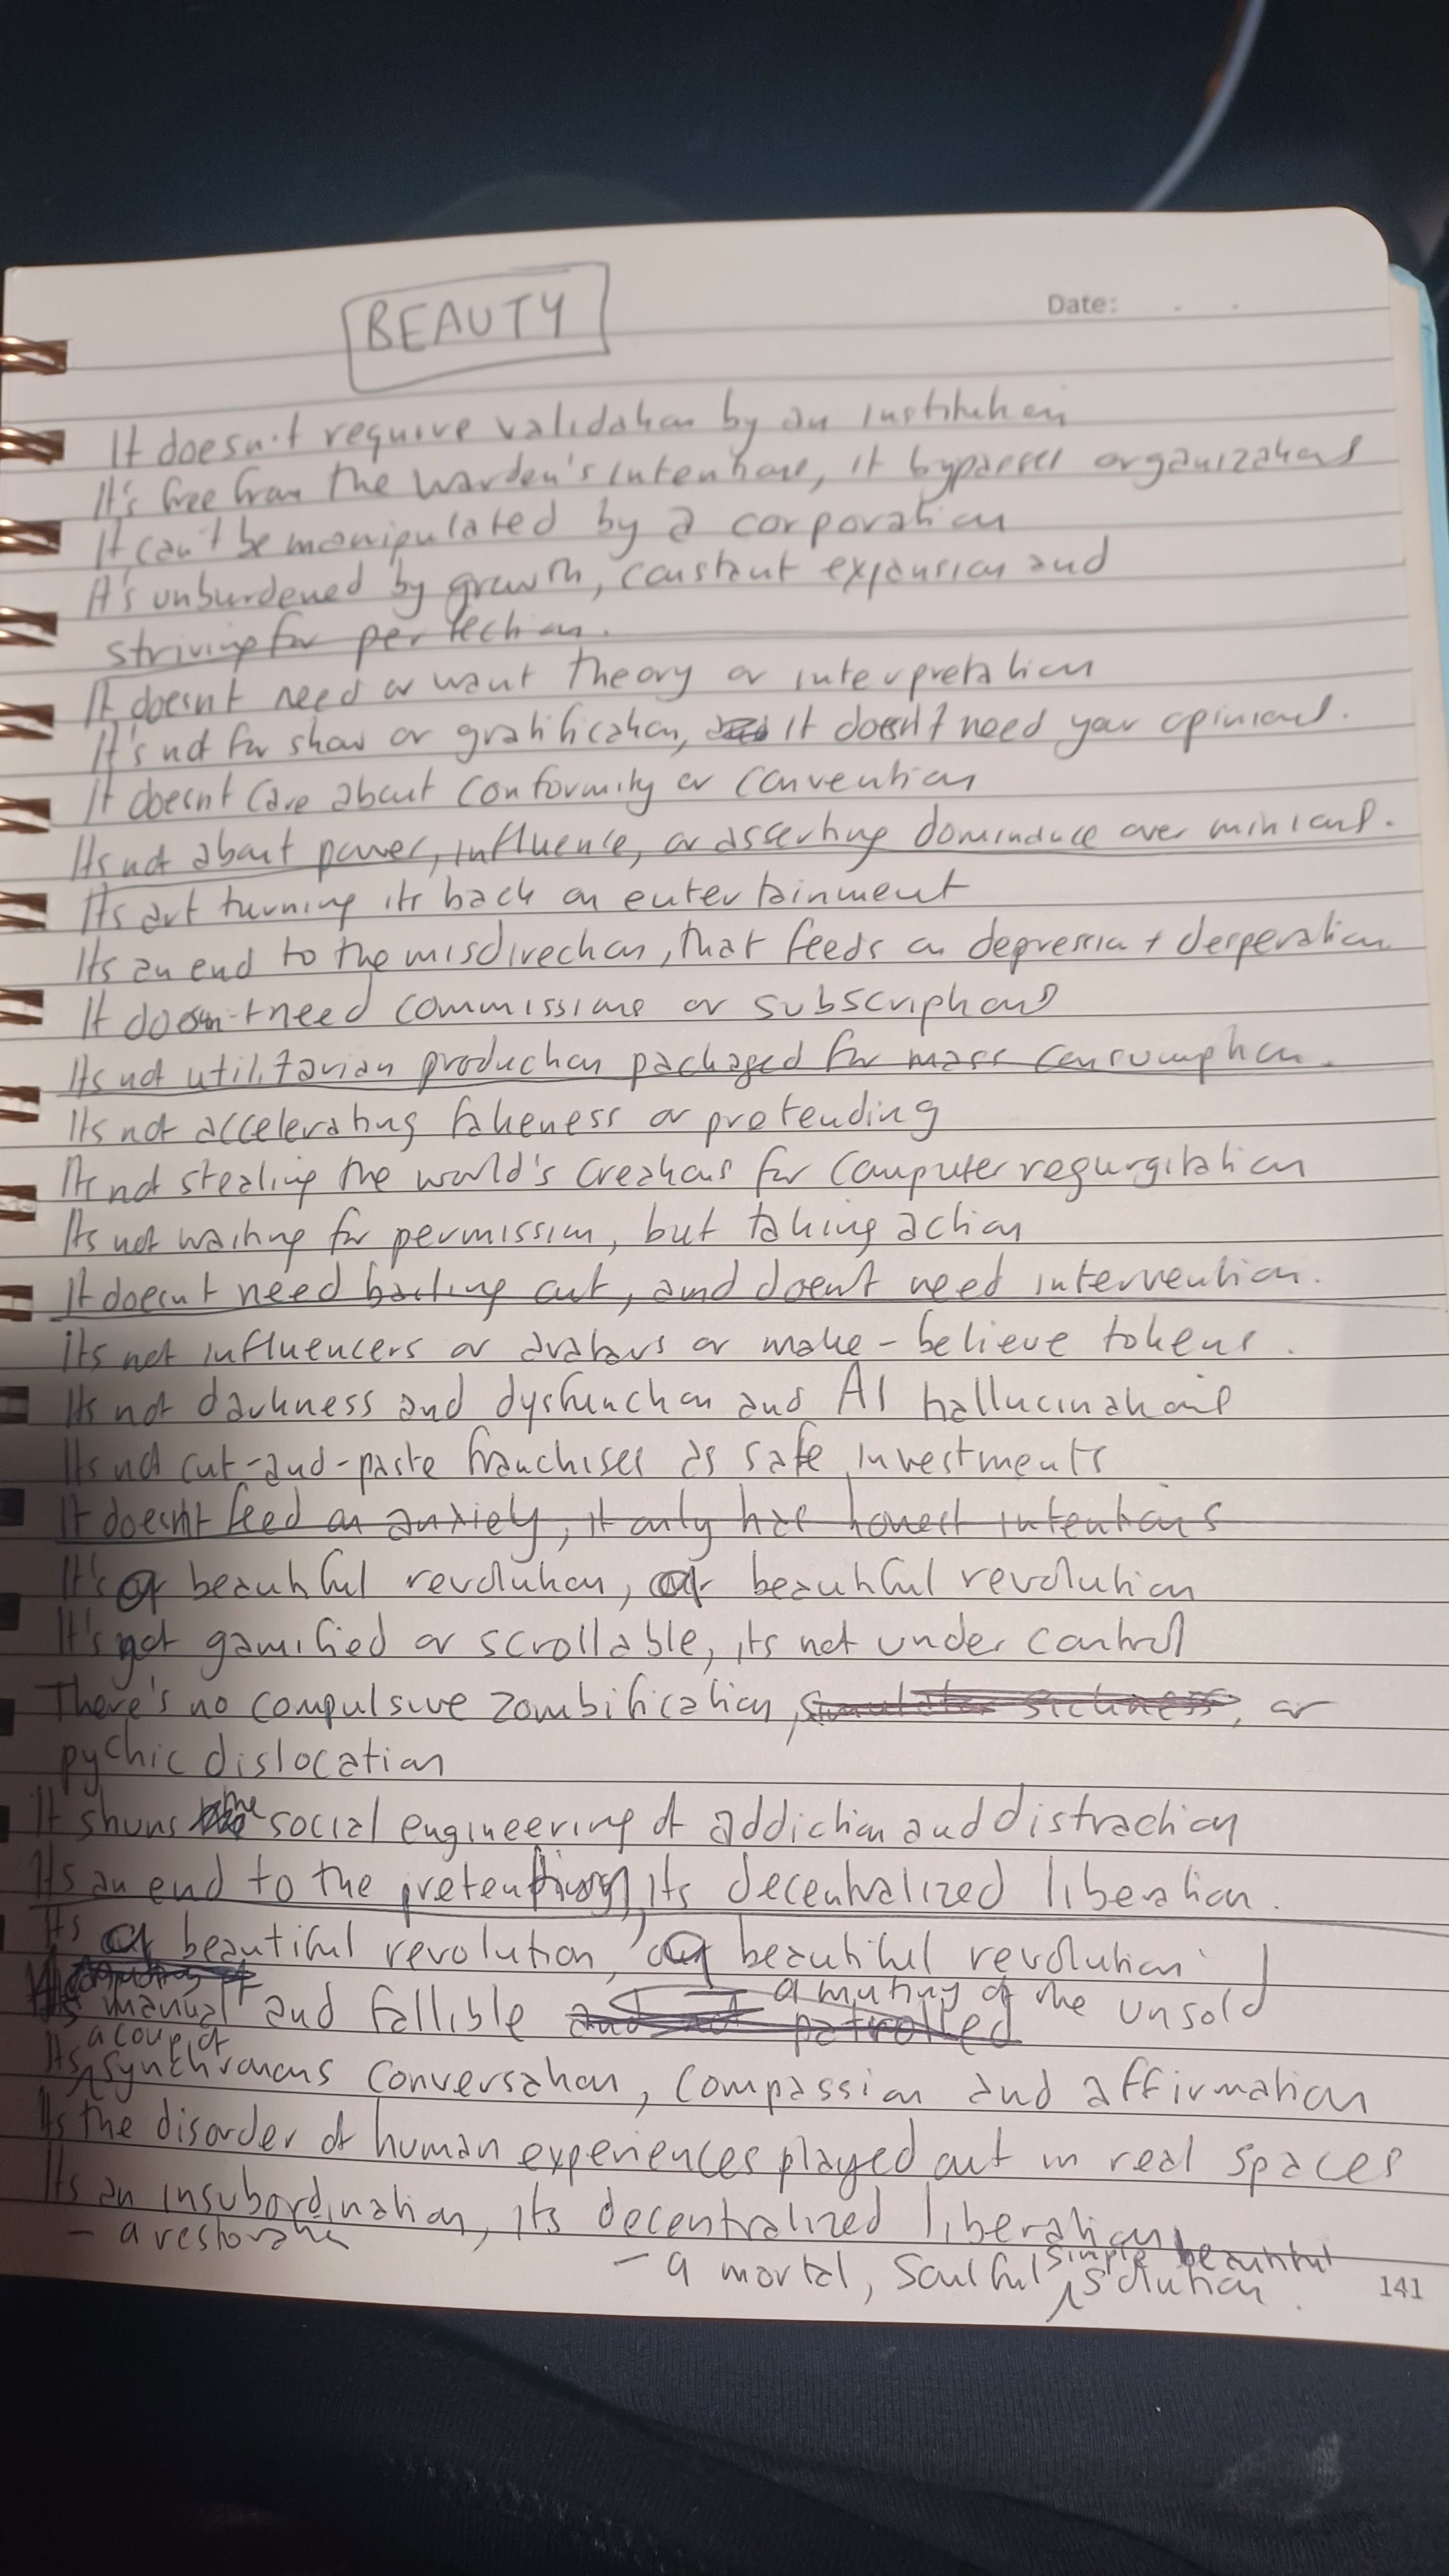 BEAUTY
Date: . .
It doesn't require validation by an institution
It's free from the Warden's intentions, it bypasses organizations
It can't be manipulated by a corporation
It's unburdened by growth, constant expansion and
striving for perfection.
It doesn't need or want theory or interpretation
It's not for show or gratification, it doesn't need your opinions.
It doesnt care about conformity or convention
Its not about power, influence, or asserting dominance over minions.
Its art turning its back on entertainment
Its an end to the misdirection, that feeds on depression + desperation
It doesn't need commissions or subscriptions
Its not utilitarian production packaged for mass consumption.
Its not accelerating fakeness or pretending
Its not stealing the world's creations for computer regurgitation
Its not waiting for permission, but taking action
It doesn't need bailing out, and doesn't need intervention.
its not influencers or avatars or make-believe tokens.
Its not darkness and dysfunction and AI hallucinations
Its not cut-and-paste franchises as safe investments
It doesn't feed on anxiety, it only has honest intentions
It's a beautiful revolution, a beautiful revolution
It's not gamified or scrollable, its not under control
There's no compulsive zombification, sickness, or
pychic dislocation
It shuns the social engineering of addiction and distraction
Its an end to the its decentralized liberation.
Its a beautiful revolution, a beautiful revolution
Its manual and fallible and not patrolled a mutiny of the unsold
a coup of
Its synchronous conversation, compassion and affirmation
Its the disorder of human experiences played out in real spaces
Its an insubordination, its decentralized liberation
- a restorative simple beautiful
- a mortal, soulful solution.
141